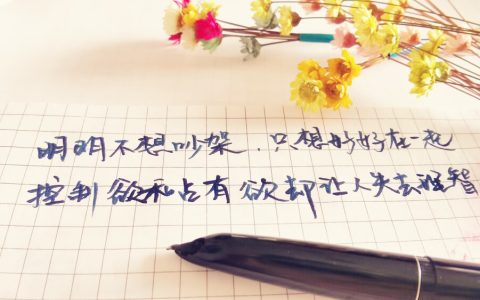 明明不想吵架.只想好好在一起
控制欲和占有欲却让人失去理智